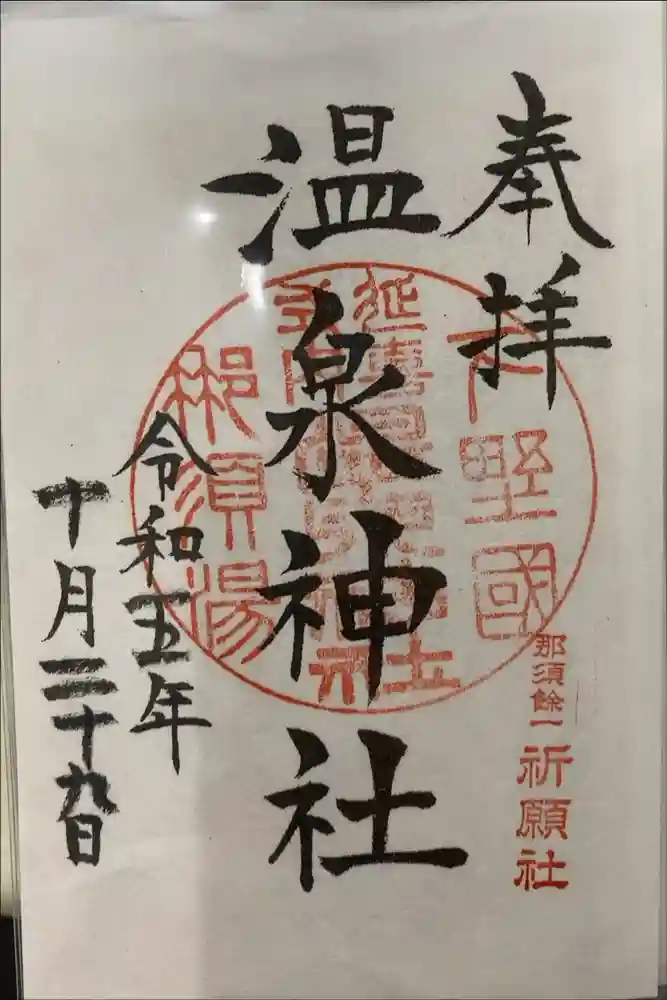 奉拝
下野國
那須餘一
祈願社
温泉神社
延喜式内
那須湯
令和五年
十月二十九日